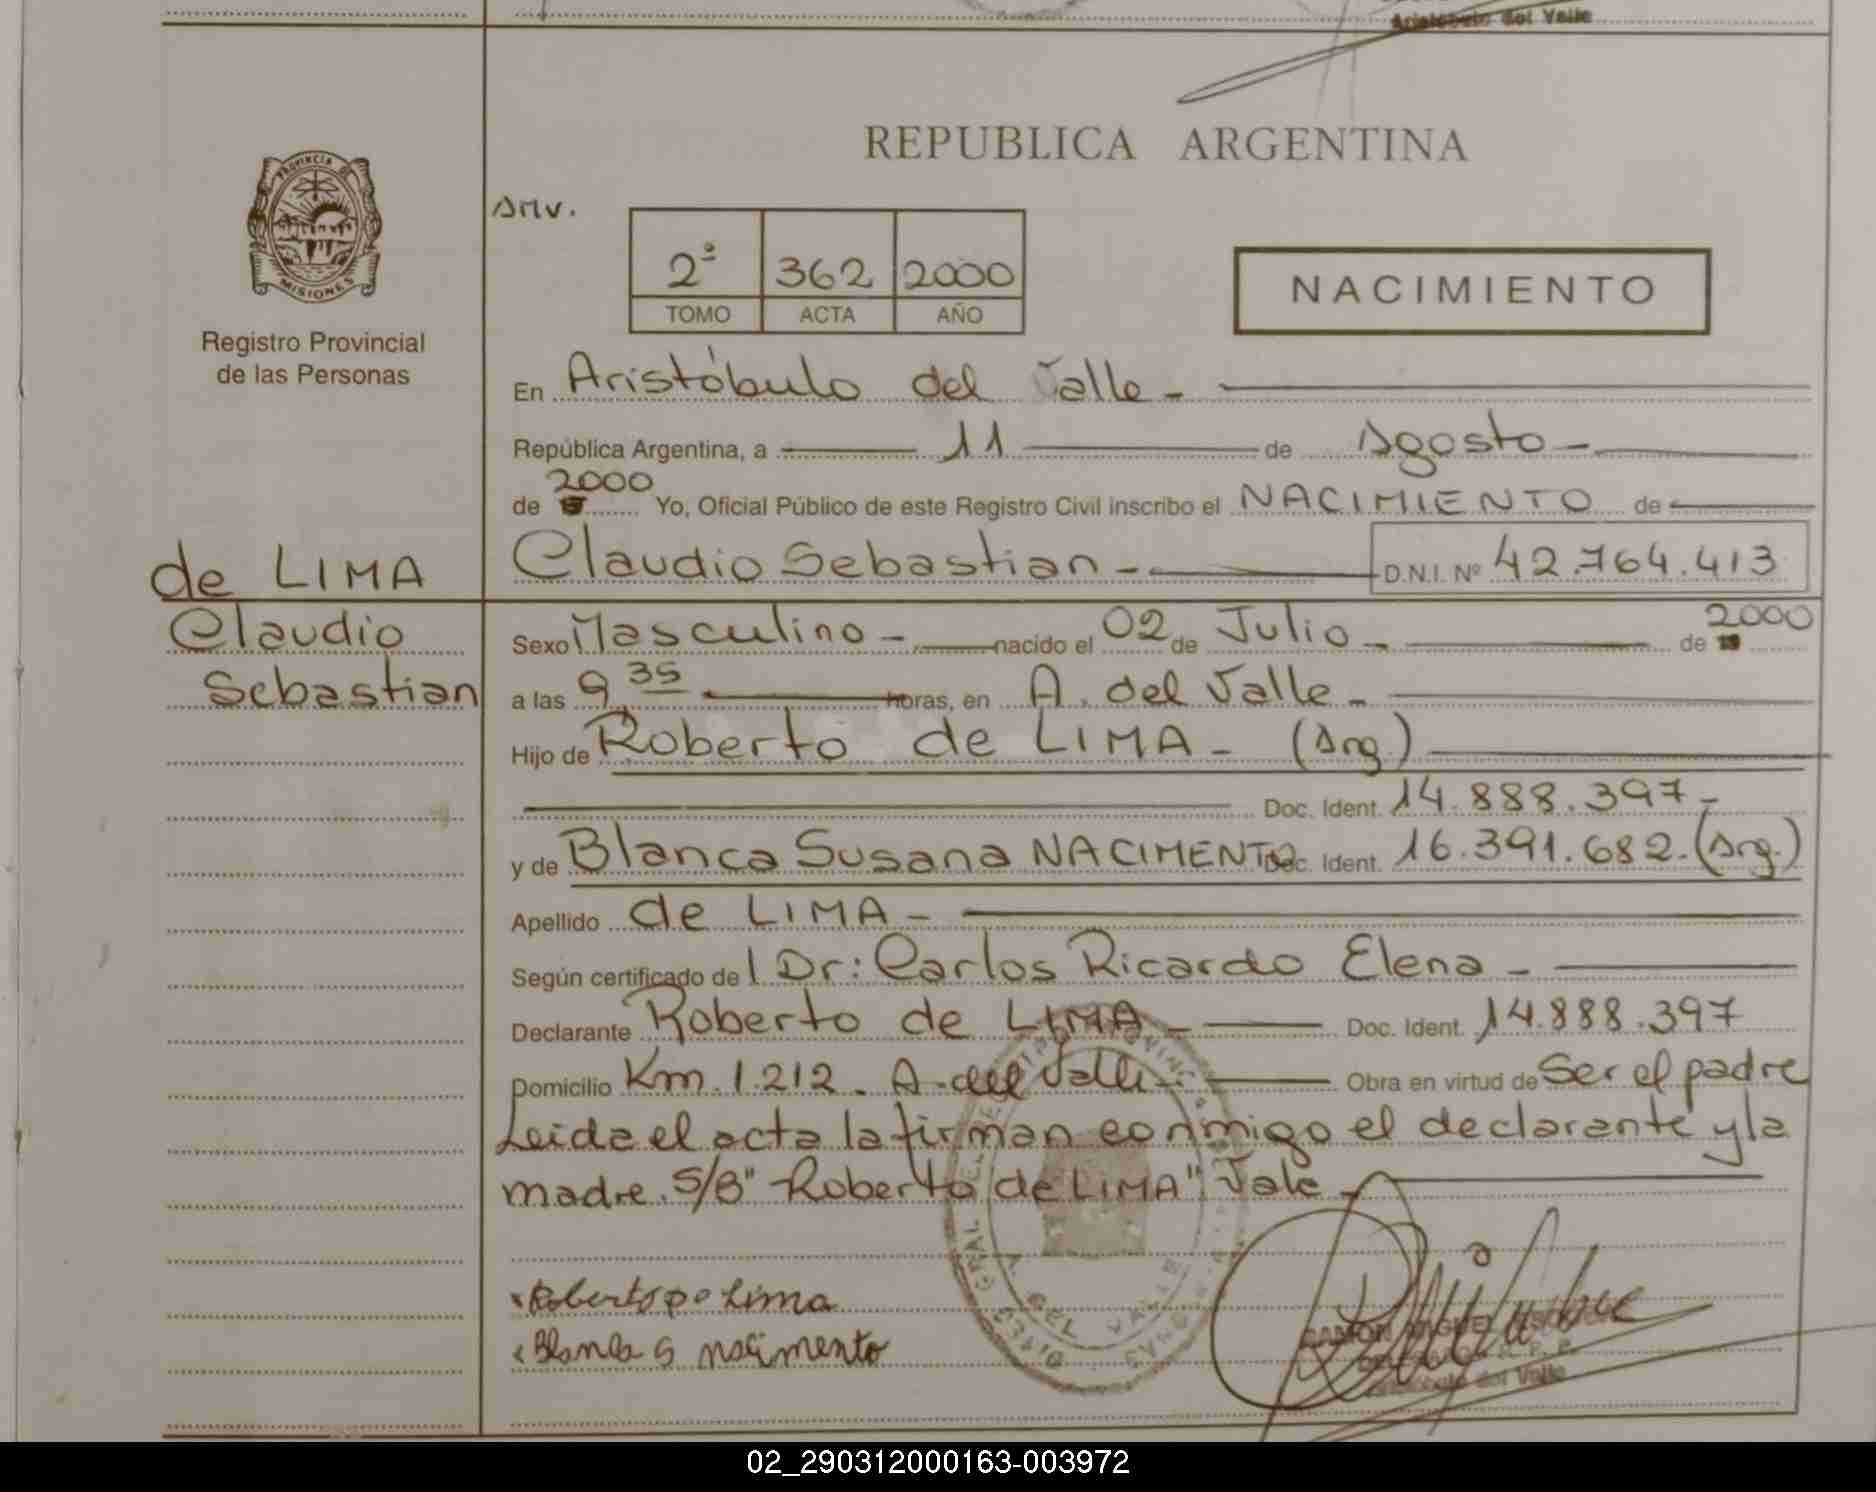 Aristóbulo del Valle
REPUBLICA ARGENTINA
PROVINCIA DE
MISIONES
Registro Provincial
de las Personas
2º 362 2000
TOMO ACTA AÑO
NACIMIENTO
En Aristóbulo del Valle -
República Argentina, a 11 de Agosto -
de 2000 Yo, Oficial Público de este Registro Civil inscribo el NACIMIENTO de
Claudio Sebastian - D.N.I. Nº 42.764.413
de LIMA
Claudio
Sebastian
Sexo Masculino - nacido el 02 de Julio - de 2000
a las 9,35 horas, en A. del Valle -
Hijo de Roberto de LIMA - (Arg.)
Doc. Ident. 14.888.397-
y de Blanca Susana NACIMENTO Doc. Ident. 16.391.682.(Arg.)
Apellido de LIMA -
Según certificado de l Dr: Carlos Ricardo Elena -
Declarante Roberto de LIMA - Doc. Ident. 14.888.397
Domicilio Km. 1.212 - A. del Valle - Obra en virtud de Ser el padre
Leida el acta la firman conmigo el declarante y la
madre. S/B" Roberto de LIMA" Vale -
Roberto de Lima
Blanca S nacimento
RAMON MIGUEL
Aristóbulo del Valle
02_290312000163-003972